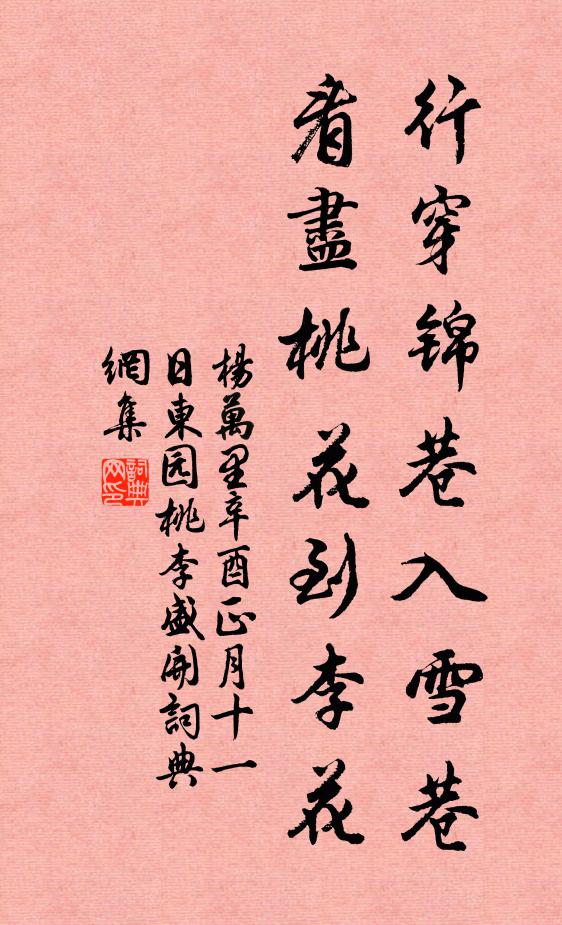 行穿锦巷入雪巷
看盡桃花到李花
楊萬里辛酉正月十一
日東园桃李盛開詞典
網集
詞典網印